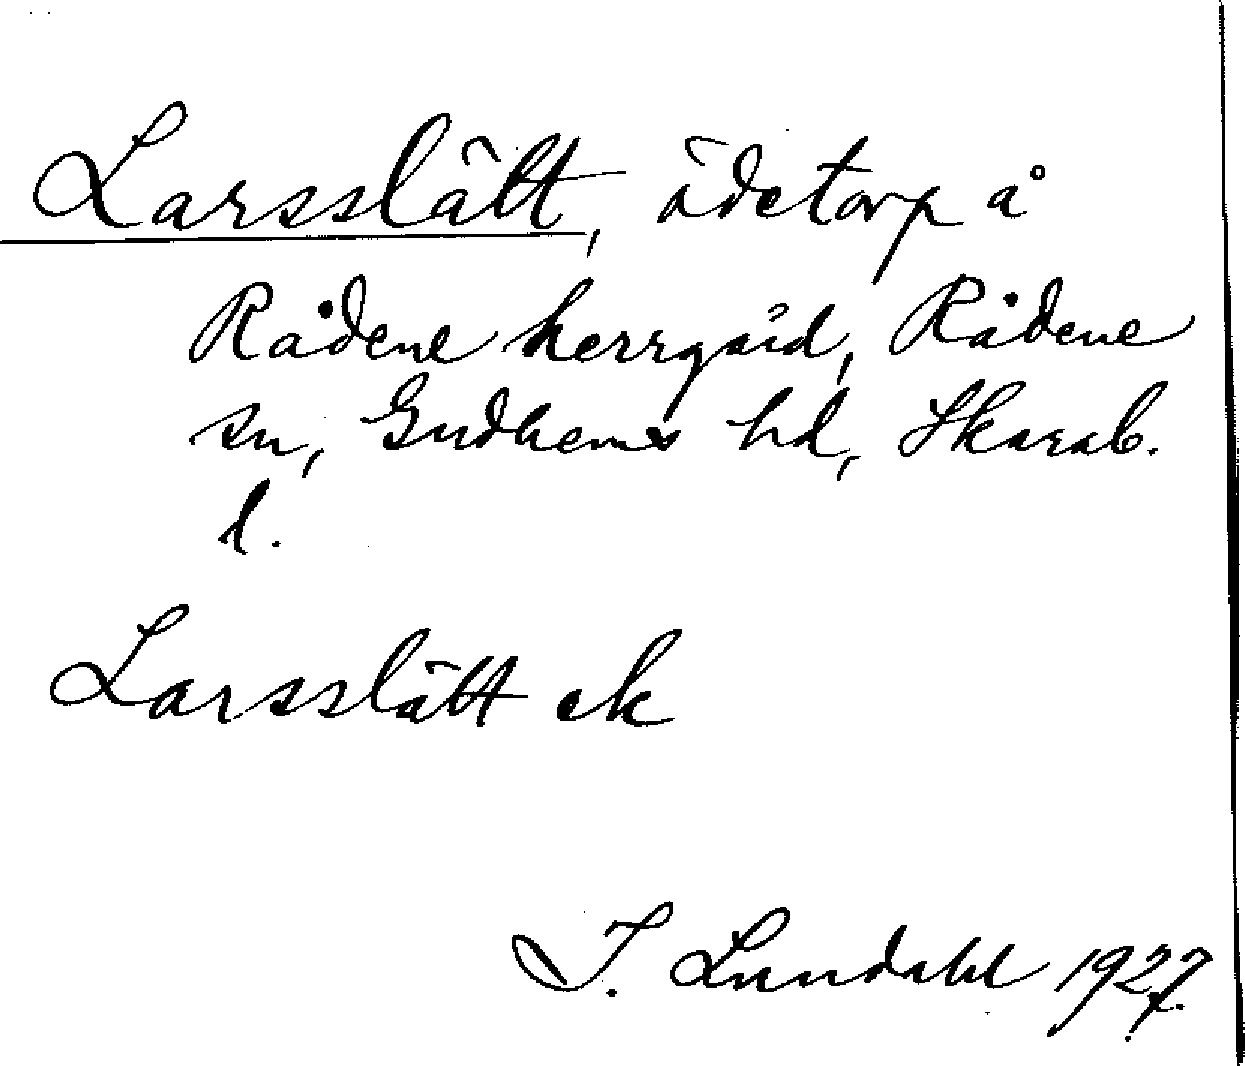 Larsslätt, ödetorp å
Rådene herrgård, Rådene
sn, Gudhems hd, Skarab.
l.
Larsslätt ek
I. Lundahl 1927.